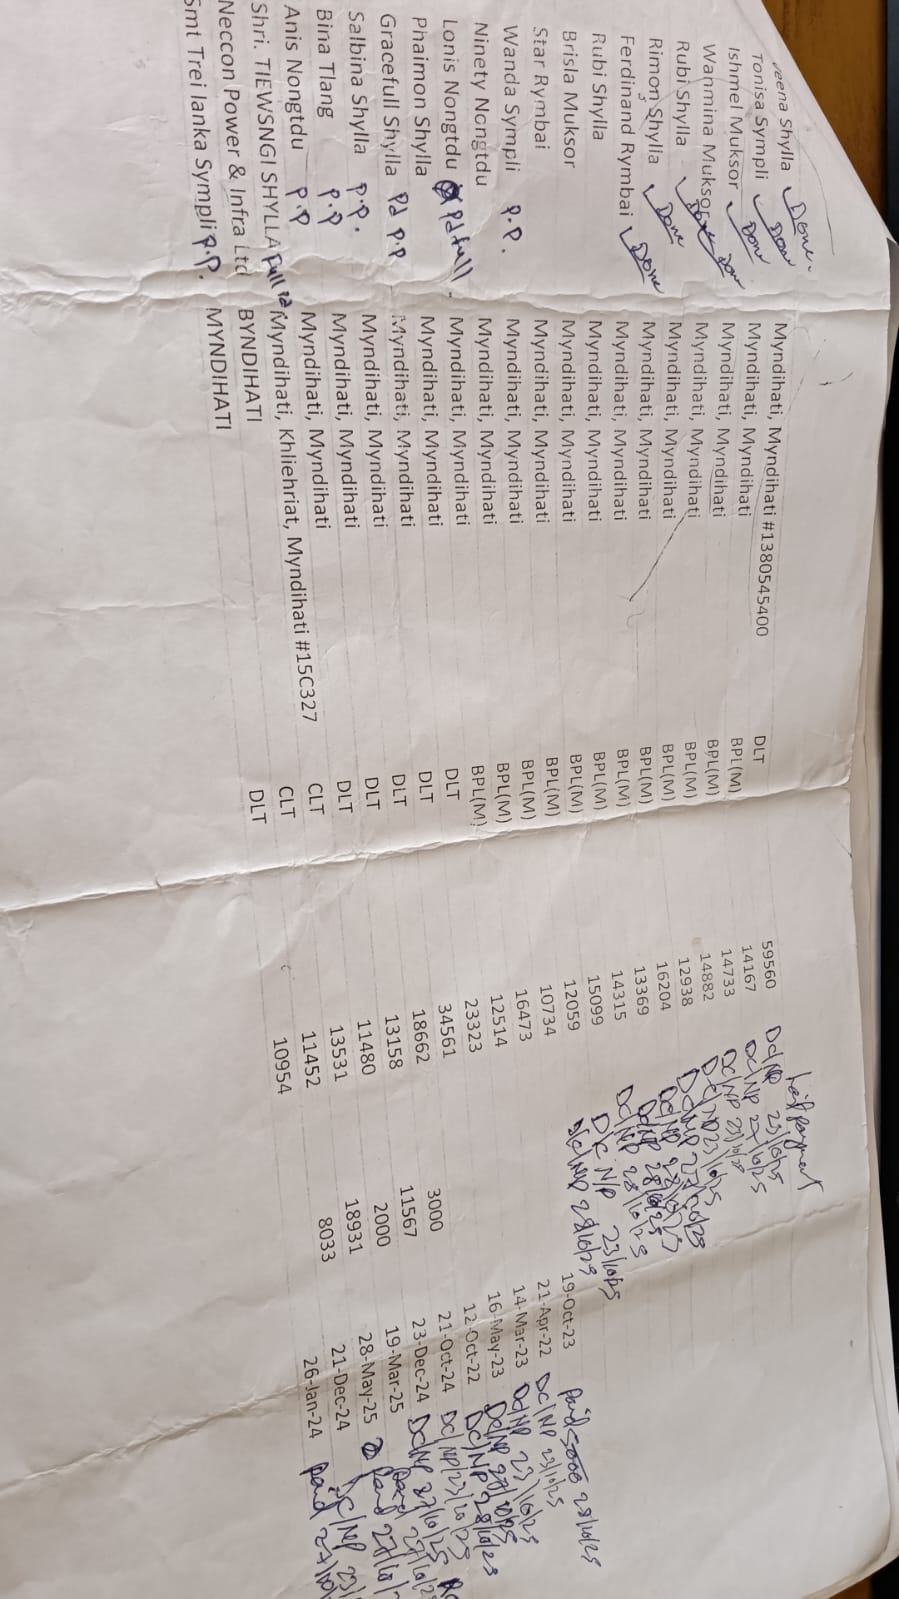 veena Shylla Done Myndihati, Myndihati #1380545400 DLT 59560 Dc/NP 23/10/25 half payment
Tonisa Sympli Done Myndihati, Myndihati BPL(M) 14167 Dc/NP 27/10/25
Ishmel Muksor Done Myndihati, Myndihati BPL(M) 14733 Dc/NP 23/10/25
Wanmina Muksor Done Myndihati, Myndihati BPL(M) 14882 Dc/NP 23/10/25
Rubi Shylla Done Myndihati, Myndihati BPL(M) 12938 Dc/NP 27/10/25
Rimon Shylla Done Myndihati, Myndihati BPL(M) 16204 Dc/NP 27/10/25
Ferdinand Rymbai Done Myndihati, Myndihati BPL(M) 13369 Dc/NP 28/10/25
Rubi Shylla Myndihati, Myndihati BPL(M) 14315 Dc/NP 28/10/25
Brisla Muksor Myndihati, Myndihati BPL(M) 15099 D/C N/P 23/10/25
Star Rymbai Myndihati, Myndihati BPL(M) 12059 D/c/NP 28/10/25
Wanda Sympli P.P. Myndihati, Myndihati BPL(M) 10734 19-Oct-23 Paid 5000 28/10/25
Ninety Nongtdu Myndihati, Myndihati BPL(M) 16473 21-Apr-22 Dc/NP 23/10/25
Lonis Nongtdu Pd full Myndihati, Myndihati BPL(M) 12514 14-Mar-23 Dc/NP 23/10/25
Phaimon Shylla Myndihati, Myndihati DLT 23323 16-May-23 Dc/NP 27/10/25
Gracefull Shylla Pd P.P Myndihati, Myndihati DLT 34561 12-Oct-22 Dc/NP 28/10/25
Salbina Shylla P.P. Myndihati, Myndihati DLT 18662 3000 21-Oct-24 Dc/NP/23/10/25
Bina Tlang P.P Myndihati, Myndihati DLT 13158 11567 23-Dec-24 Dc/NP 27/10/25
Anis Nongtdu P.P Myndihati, Myndihati DLT 11480 2000 19-Mar-25 Paid 27/10/2
Shri. TIEWSNGI SHYLLA Full Pd Myndihati, Khliehriat, Myndihati #15C327 CLT 13531 18931 28-May-25 Paid 27/10/
Neccon Power & Infra Ltd BYNDIHATI CLT 11452 8033 21-Dec-24 DC/NP 23/
Smt Trei lanka Sympli P.P. MYNDIHATI DLT 10954 26-Jan-24 Paid 27/10/